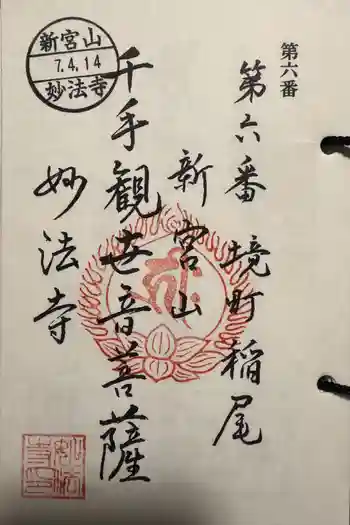 第六番
第六番 境町稲尾
新宮山
千手観世音菩薩
妙法寺
新宮山
7.4.14
妙法寺
妙法寺印